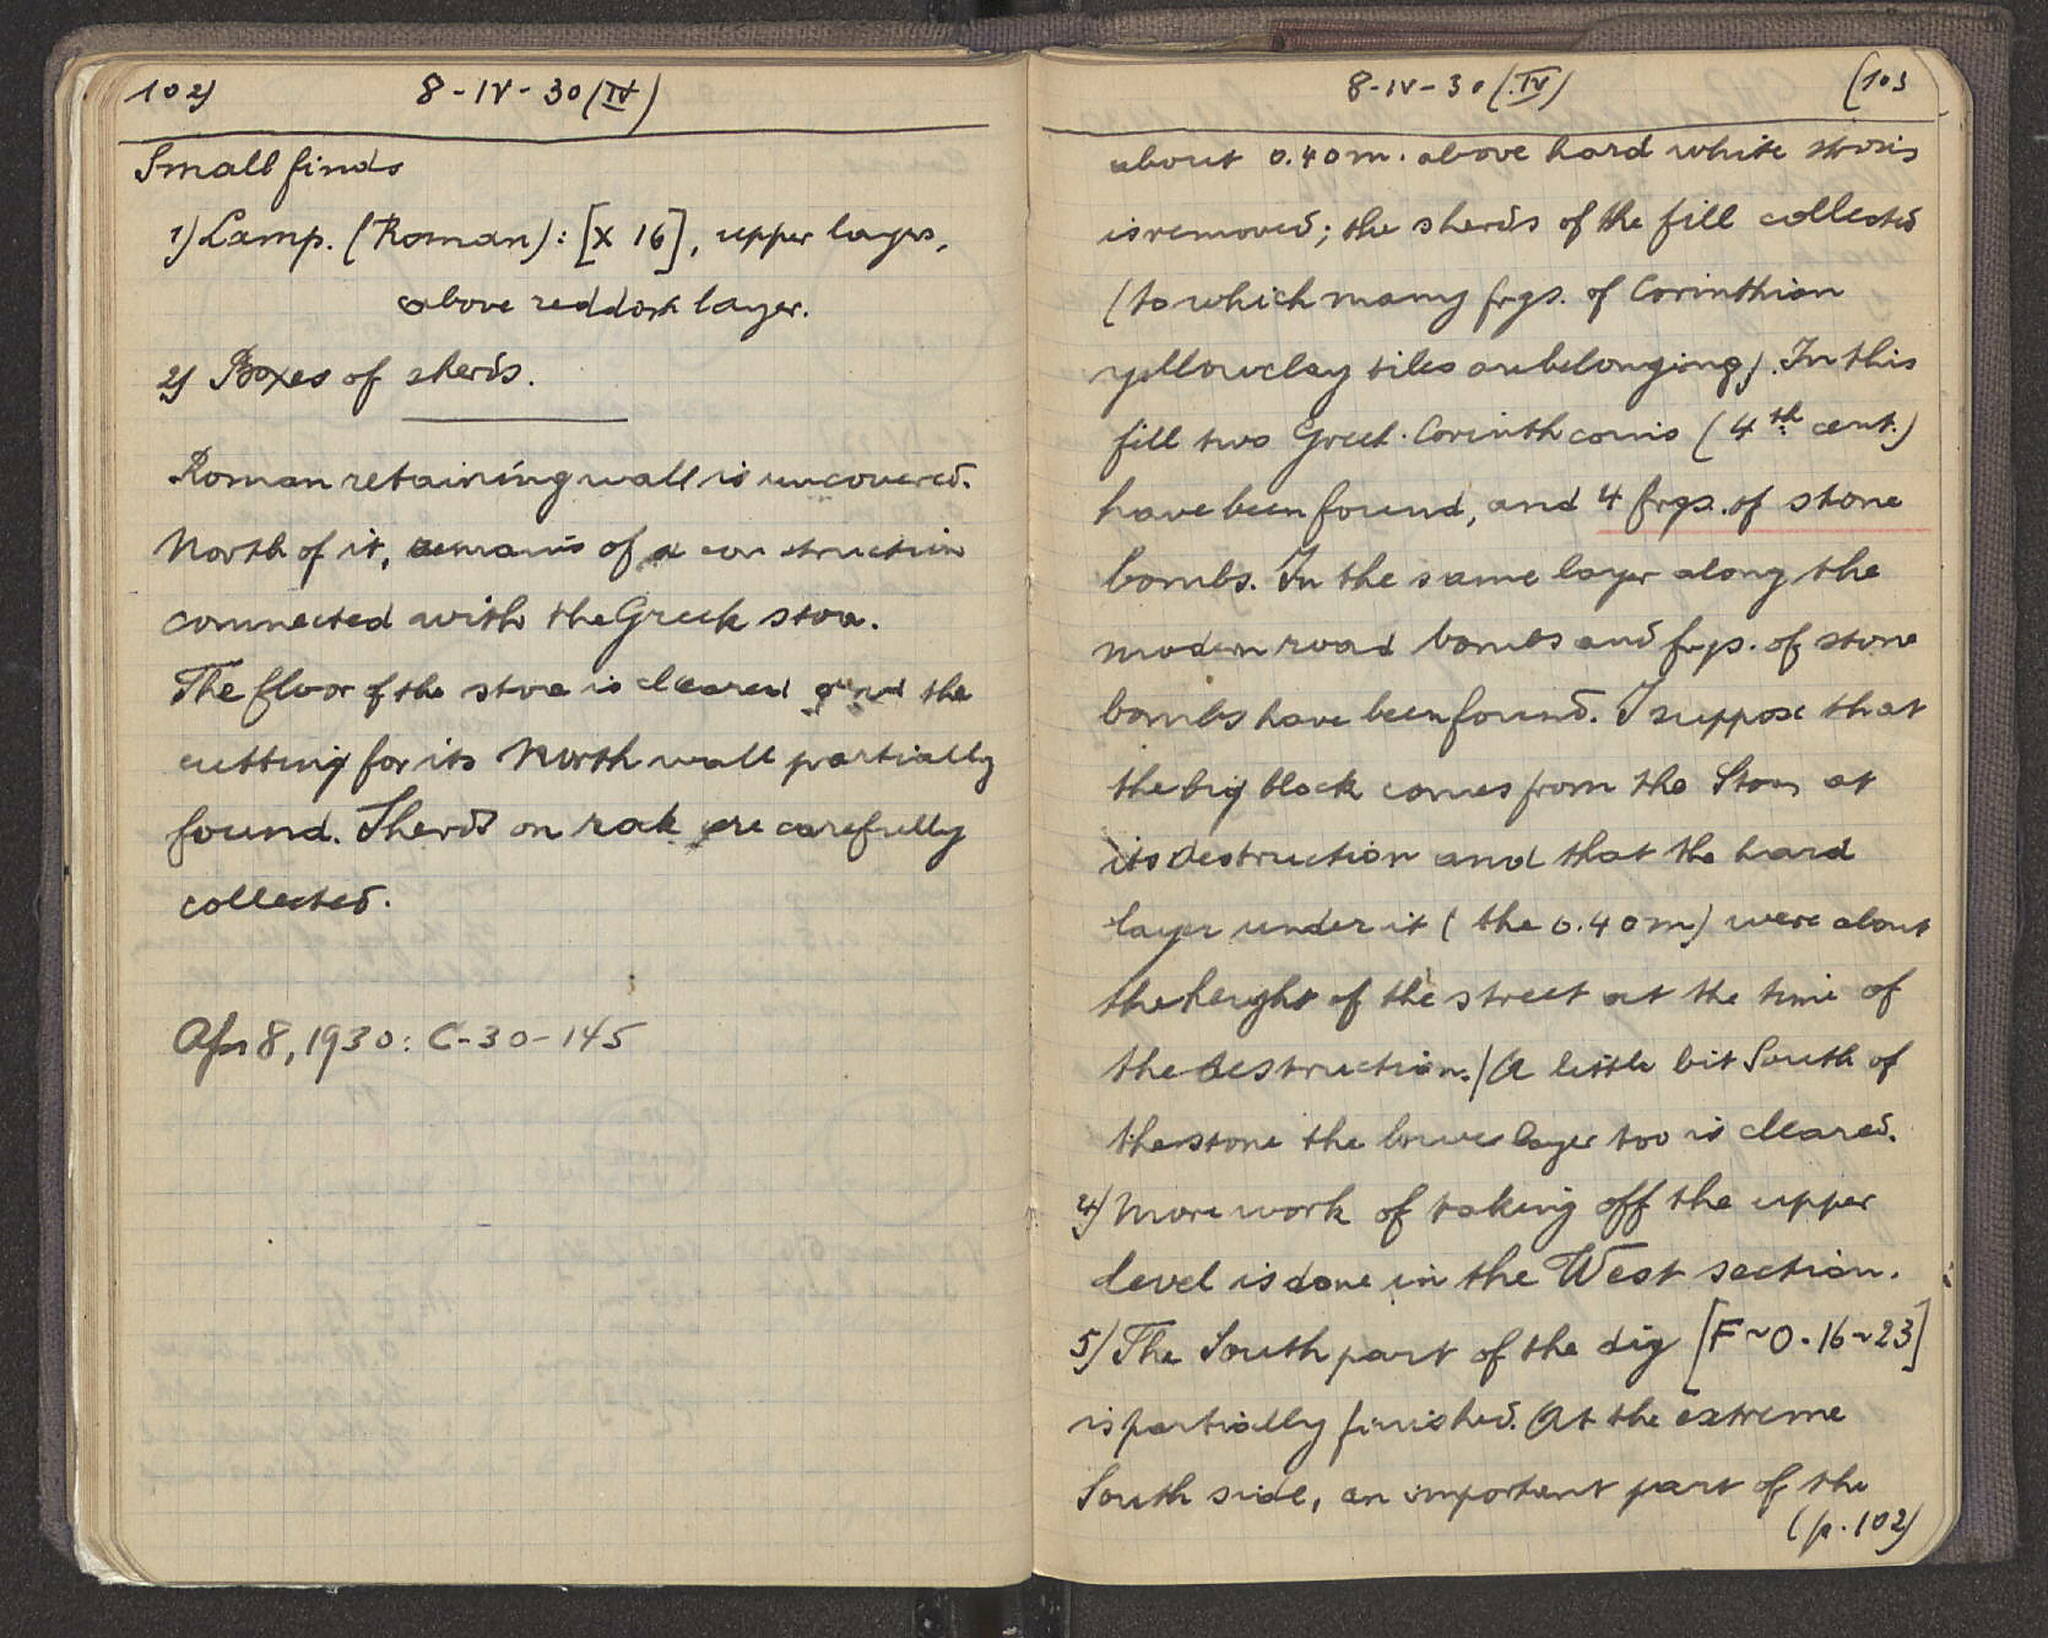 102)
8-IV-30 (IV)
Small finds
1) Lamp. (Roman): [X 16], upper layers,
above reddark layer.
2) Boxes of sherds.
Roman retaining wall is uncovered.
North of it, remains of a construction
connected with the Greek stoa.
The floor of the stoa is cleared and the
cutting for its North wall partially
found. Sherds on rock are carefully
collected.
Apr 8, 1930: C-30-145
8-IV-30 (IV)
(103
about 0.40m. above hard white
is removed; the sherds of the fill collected
(to which many frgs. of Corinthian
yellowclay tiles are belonging). In this
fill two Greek. Corinth coins (4th cent.)
have been found, and 4 frgs. of stone
bombs. In the same layer along the
modern road bombs and frgs. of stone
bombs have been found. I suppose that
the big block comes from the Stoa, at
its destruction and that the hard
layer under it (the 0.40m) were about
the height of the street at the time of
the destruction.) A little bit South of
the stone the lower layer too is cleared.
4) More work of taking off the upper
level is done in the West section.
5) The South part of the dig [F~O.16~23]
is partially finished. At the extreme
South side, an important part of the
(p.102)